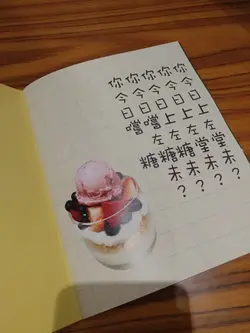 你今日上左堂未?
你今日上左堂未?
你今日上左糖未?
你今日嚐左糖未?
你今日嚐糖